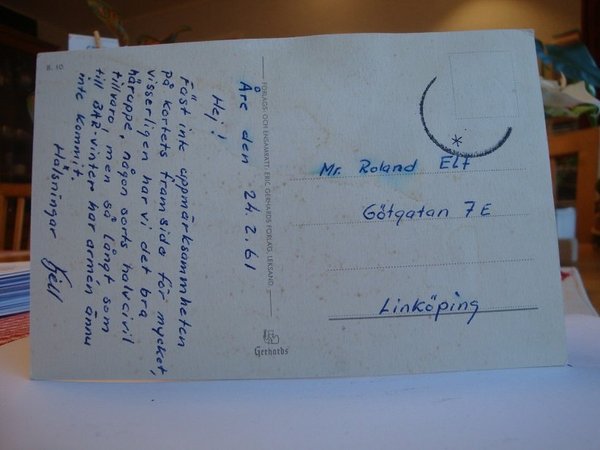 B. 10
Åre den 24.2.61
Hej!
Fäst inte uppmärksammheten
på kortets framsida för mycket,
visserligen har vi det bra
häruppe, någon sorts halvcivil
tillvaro, men så långt som
till BAR-vinter har armen ännu
inte kommit.
Hälsningar Kjell
FÖRLAGS- OCH ENSAMRÄTT: ERIC GERHARDS FÖRLAG, LEKSAND
Gerhards
Mr. Roland Elf
Götgatan 7E
Linköping